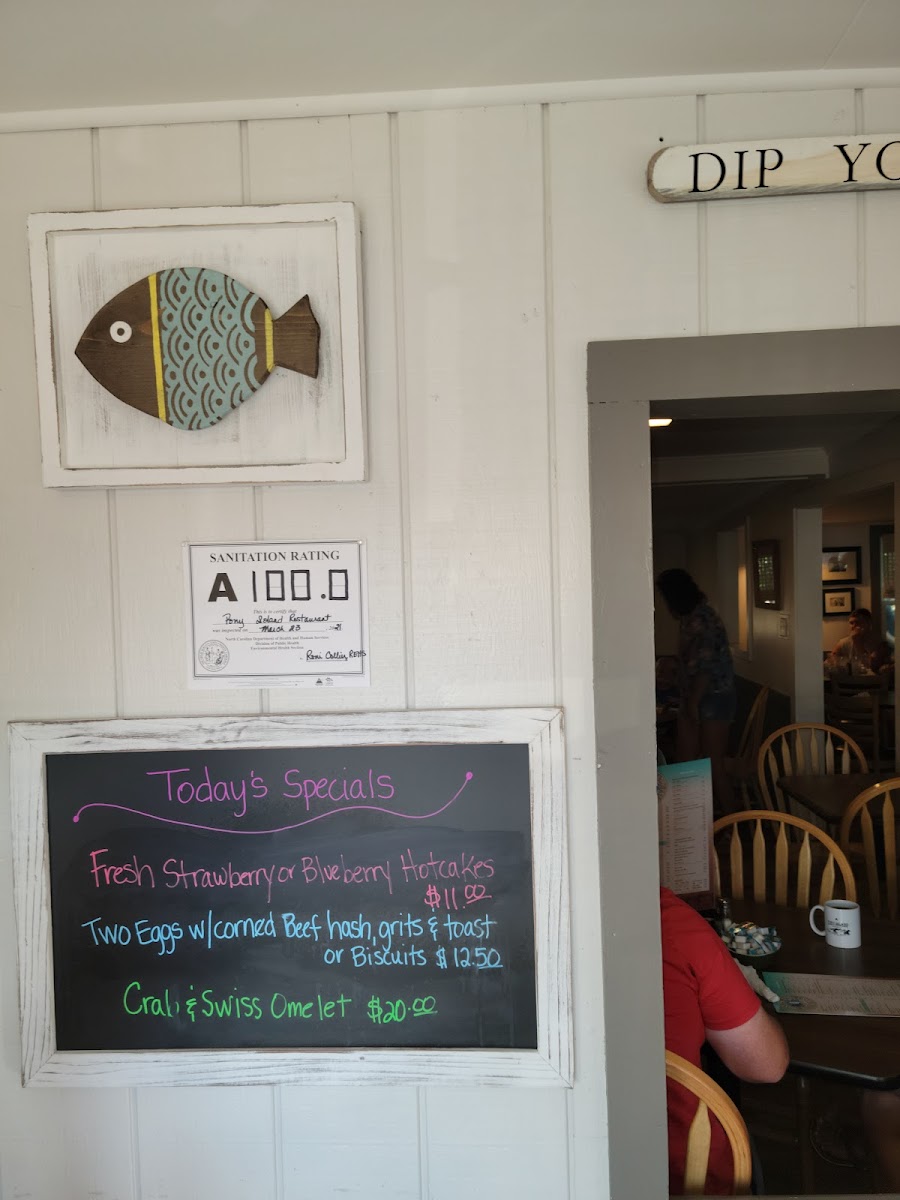 DIP YO
SANITATION RATING
A 100.0
This is to certify that
Pony Island Restaurant
was inspected on March 23
North Carolina Department of Health and Human Services
Division of Public Health
Environmental Health Section
Today's Specials
Fresh Strawberry or Blueberry Hotcakes
$11.00
Two Eggs w/corned Beef hash, grits & toast
or Biscuits $12.50
Crab & Swiss Omelet $20.00